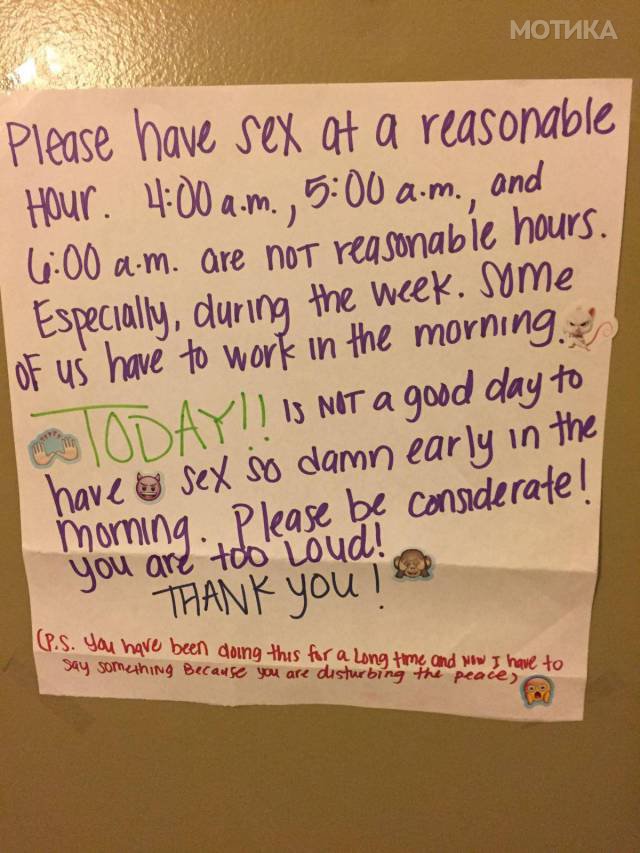 МОТИКА
Please have sex at a reasonable
Hour. 4:00 a.m., 5:00 a.m., and
6:00 a.m. are not reasonable hours.
Especially, during the week. Some
of us have to work in the morning.
TODAY!! is NOT a good day to
have sex so damn early in the
morning. Please be considerate!
you are too Loud!
THANK YOU!
(P.S. You have been doing this for a Long time and now I have to
say something Because you are disturbing the peace)